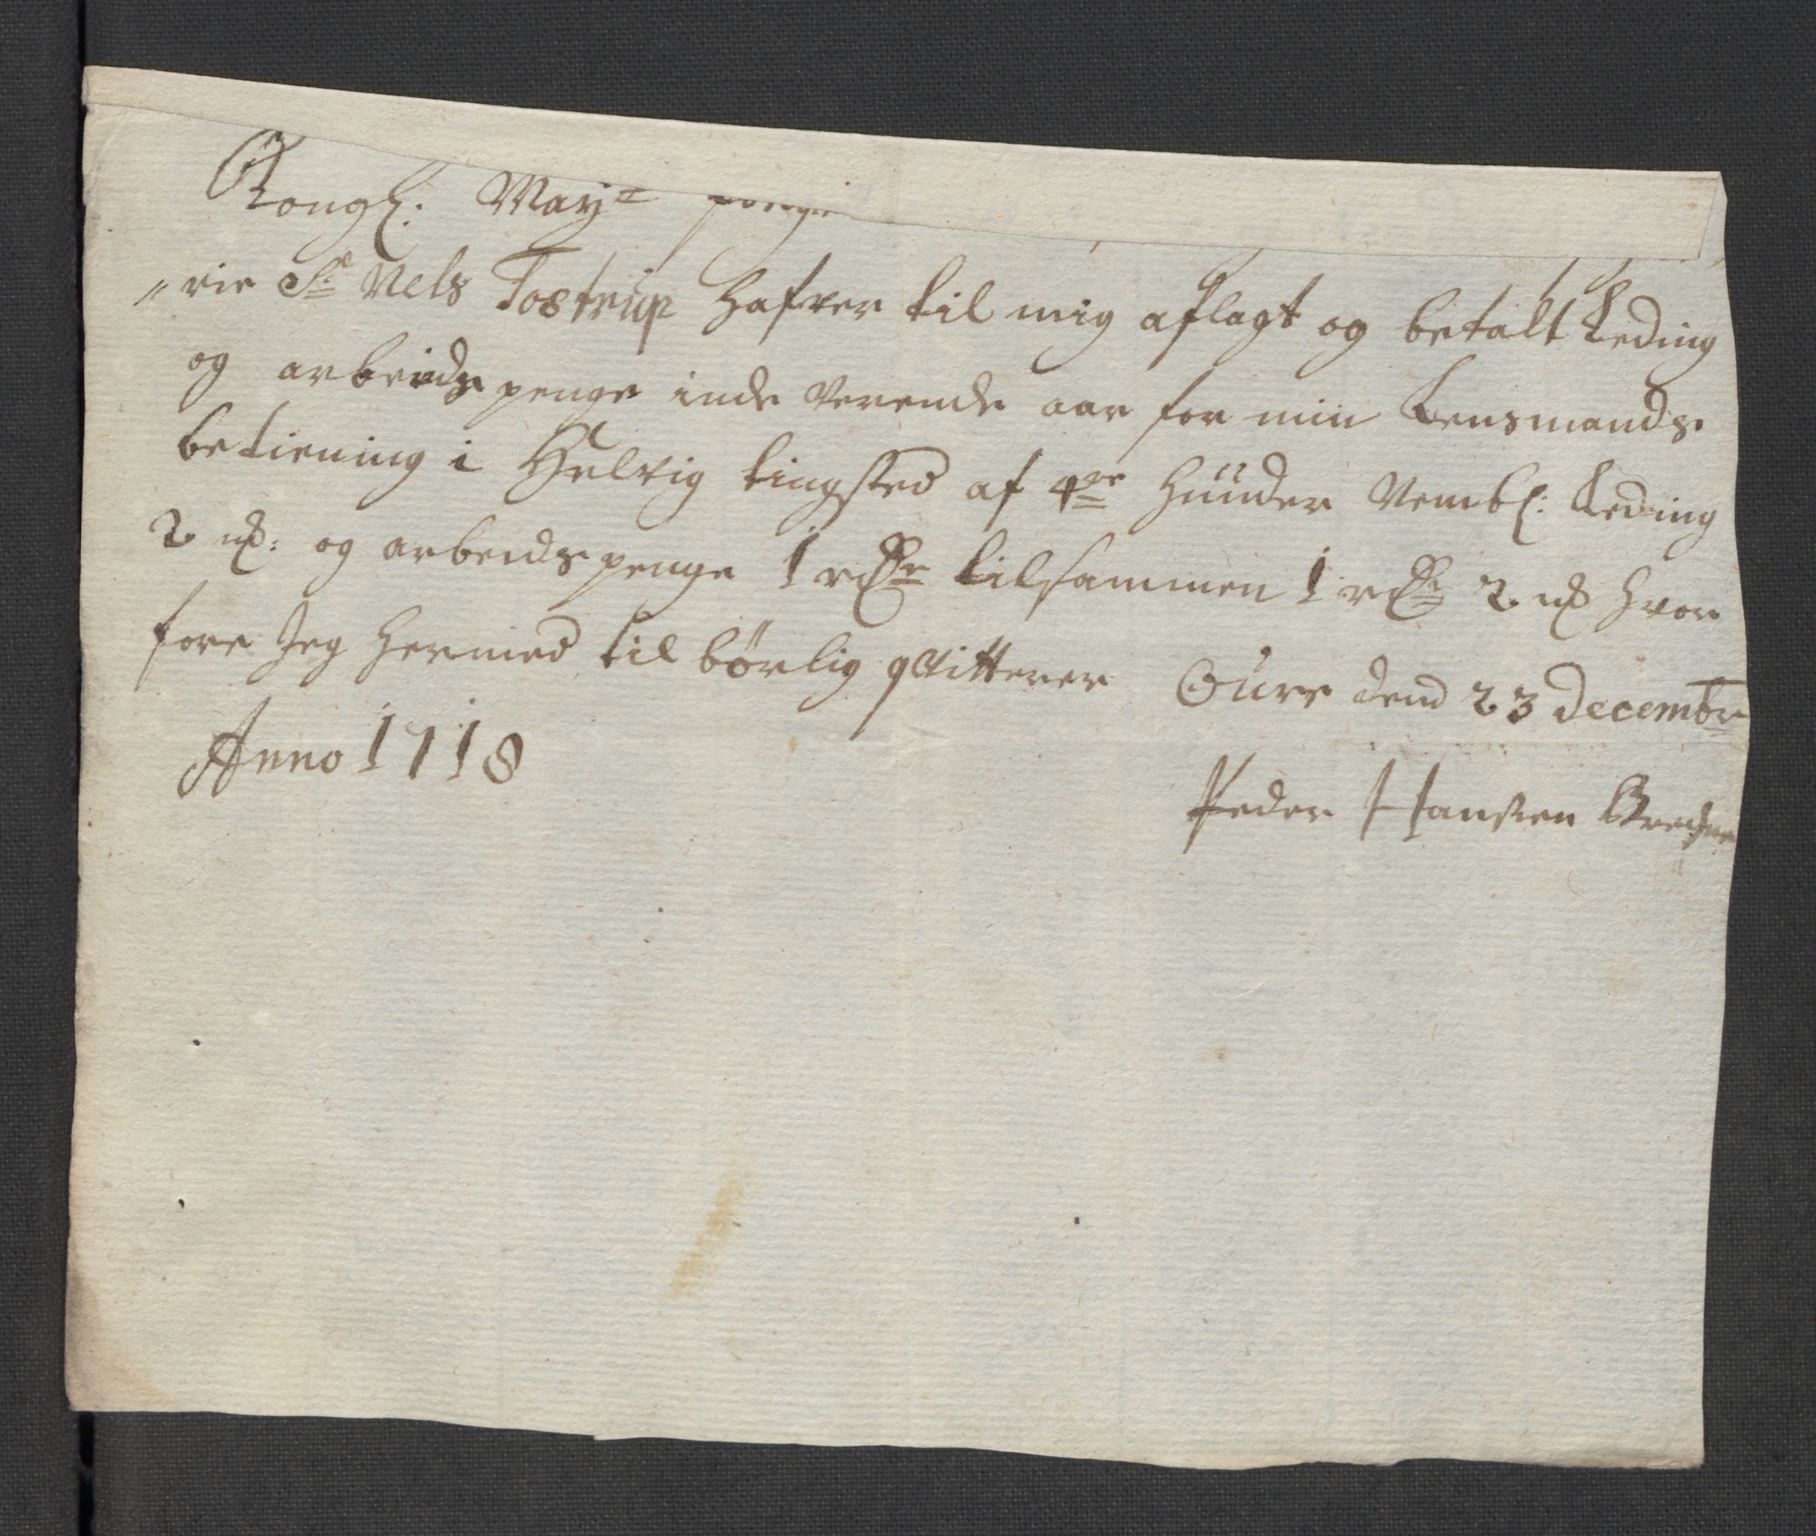 Kongl: May:tz
rie Sr Nels Tostrup hafver til mig aflagt og betalt Leding
og arbeidspenge inde Verende aar for min Lensmands
betiening i Helvig tingsted af 4re Hunder Vembl: Leding
2 m: og arbeidspenge 1 rdlr tilsammen 1 rdlr 2 m hvor
fore Jeg hermed til børlig qvitterer Gure dend 23 decembr
Anno 1718
Peder Hansen